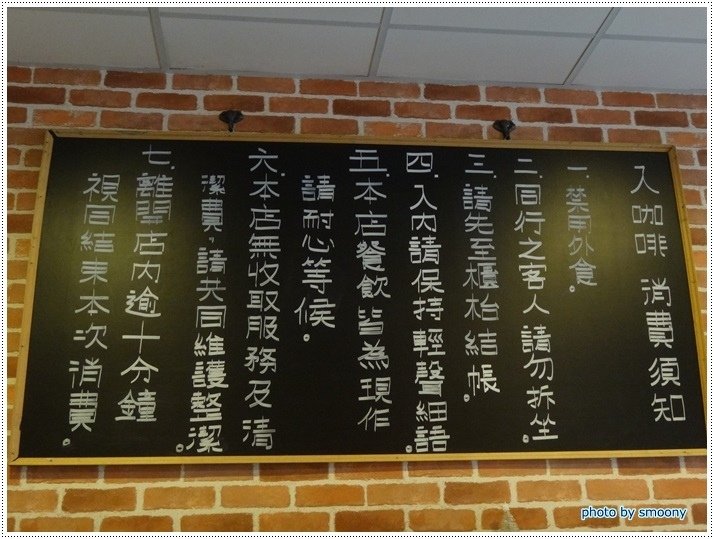 入咖啡 消費須知
一.禁用外食。
二.同行之客人請勿拆坐。
三.請先至櫃枱結帳。
四.入內請保持輕聲細語。
五.本店餐飲皆為現作
請耐心等候。
六.本店無收取服務及清
潔費,請共同維護整潔。
七.離開店內逾十分鐘
視同結束本次消費。
photo by smoony